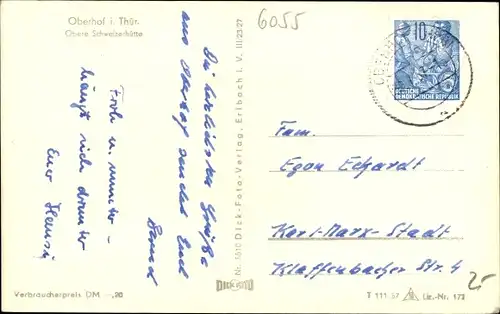 Oberhof i. Thür.
Obere Schweizerhütte
6055
Die herzlichsten Grüße
aus Oberhof sendet Euch
Bernd
Froh u. munter –
hängt sich drunter
Euer Heinz
Verbraucherpreis DM –,20
Nr. 1610 Dick-Foto-Verlag, Erlbach i. V. III/23/27
DICK FOTO
10
DEUTSCHE
DEMOKRATISCHE REPUBLIK
Fam.
Egon Eckardt
Karl-Marx-Stadt
Klaffenbacher Str. 4
T 111 57 Liz.-Nr. 172